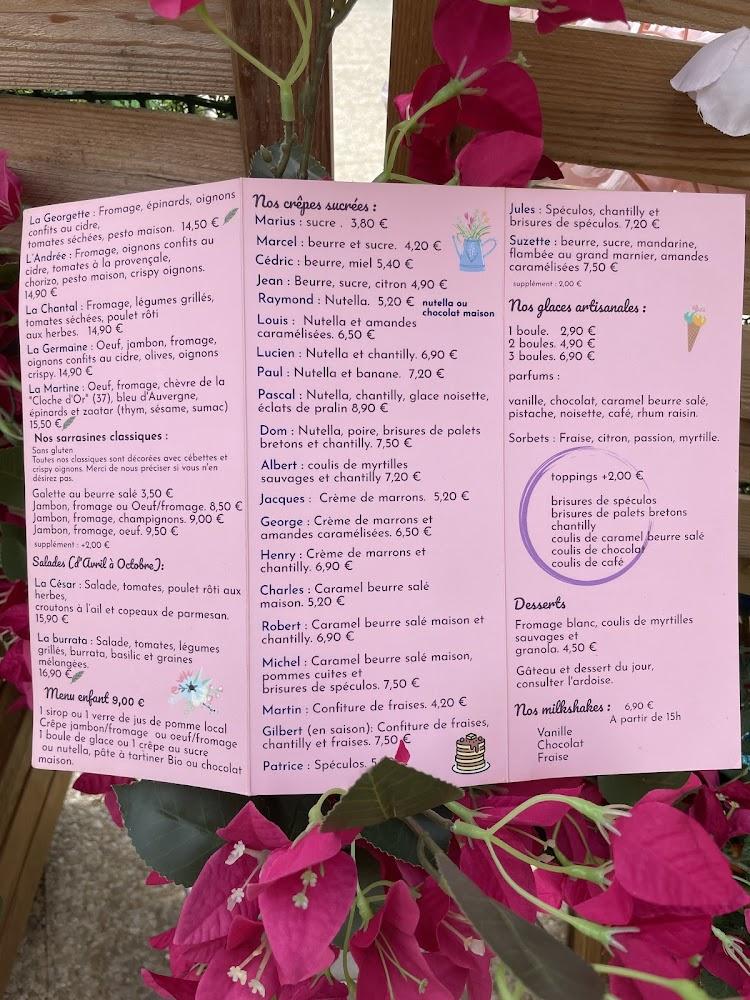 La Georgette : Fromage, épinards, oignons
confits au cidre,
tomates séchées, pesto maison. 14,50 €
L'Andrée : Fromage, oignons confits au
cidre, tomates à la provençale,
chorizo, pesto maison, crispy oignons.
14,90 €
La Chantal : Fromage, légumes grillés,
tomates séchées, poulet rôti
aux herbes. 14,90 €
La Germaine : Oeuf, jambon, fromage,
oignons confits au cidre, olives, oignons
crispy. 14,90 €
La Martine : Oeuf, fromage, chèvre de la
"Cloche d'Or" (37), bleu d'Auvergne,
épinards et zaatar (thym, sésame, sumac)
15,50 €
Nos sarrasines classiques :
Sans gluten
Toutes nos classiques sont décorées avec cébettes et
crispy oignons. Merci de nous préciser si vous n'en
désirez pas.
Galette au beurre salé 3,50 €
Jambon, fromage ou Oeuf/fromage. 8,50 €
Jambon, fromage, champignons. 9,00 €
Jambon, fromage, oeuf. 9,50 €
supplément : +2,00 €
Salades (d'Avril à Octobre):
La César : Salade, tomates, poulet rôti aux
herbes,
croutons à l'ail et copeaux de parmesan.
15,90 €
La burrata : Salade, tomates, légumes
grillés, burrata, basilic et graines
mélangées.
16,90 €
Menu enfant 9,00 €
1 sirop ou 1 verre de jus de pomme local
Crêpe jambon/fromage ou oeuf/fromage
1 boule de glace ou 1 crêpe au sucre
ou nutella, pâte à tartiner Bio ou chocolat
maison.
Nos crêpes sucrées :
Marius : sucre . 3,80 €
Marcel : beurre et sucre. 4,20 €
Cédric : beurre, miel 5,40 €
Jean : Beurre, sucre, citron 4,90 €
Raymond : Nutella. 5,20 € nutella ou
chocolat maison
Louis : Nutella et amandes
caramélisées. 6,50 €
Lucien : Nutella et chantilly. 6,90 €
Paul : Nutella et banane. 7,20 €
Pascal : Nutella, chantilly, glace noisette,
éclats de pralin 8,90 €
Dom : Nutella, poire, brisures de palets
bretons et chantilly. 7,50 €
Albert : coulis de myrtilles
sauvages et chantilly 7,20 €
Jacques : Crème de marrons. 5,20 €
George : Crème de marrons et
amandes caramélisées. 6,50 €
Henry : Crème de marrons et
chantilly. 6,90 €
Charles : Caramel beurre salé
maison. 5,20 €
Robert : Caramel beurre salé maison et
chantilly. 6,90 €
Michel : Caramel beurre salé maison,
pommes cuites et
brisures de spéculos. 7,50 €
Martin : Confiture de fraises. 4,20 €
Gilbert (en saison): Confiture de fraises,
chantilly et fraises. 7,50 €
Patrice : Spéculos. 5
Jules : Spéculos, chantilly et
brisures de spéculos. 7,20 €
Suzette : beurre, sucre, mandarine,
flambée au grand marnier, amandes
caramélisées 7,50 €
supplément : 2,00 €
Nos glaces artisanales :
1 boule. 2,90 €
2 boules. 4,90 €
3 boules. 6,90 €
parfums :
vanille, chocolat, caramel beurre salé,
pistache, noisette, café, rhum raisin.
Sorbets : Fraise, citron, passion, myrtille.
toppings +2,00 €
brisures de spéculos
brisures de palets bretons
chantilly
coulis de caramel beurre salé
coulis de chocolat
coulis de café
Desserts
Fromage blanc, coulis de myrtilles
sauvages et
granola. 4,50 €
Gâteau et dessert du jour,
consulter l'ardoise.
Nos milkshakes : 6,90 €
A partir de 15h
Vanille
Chocolat
Fraise